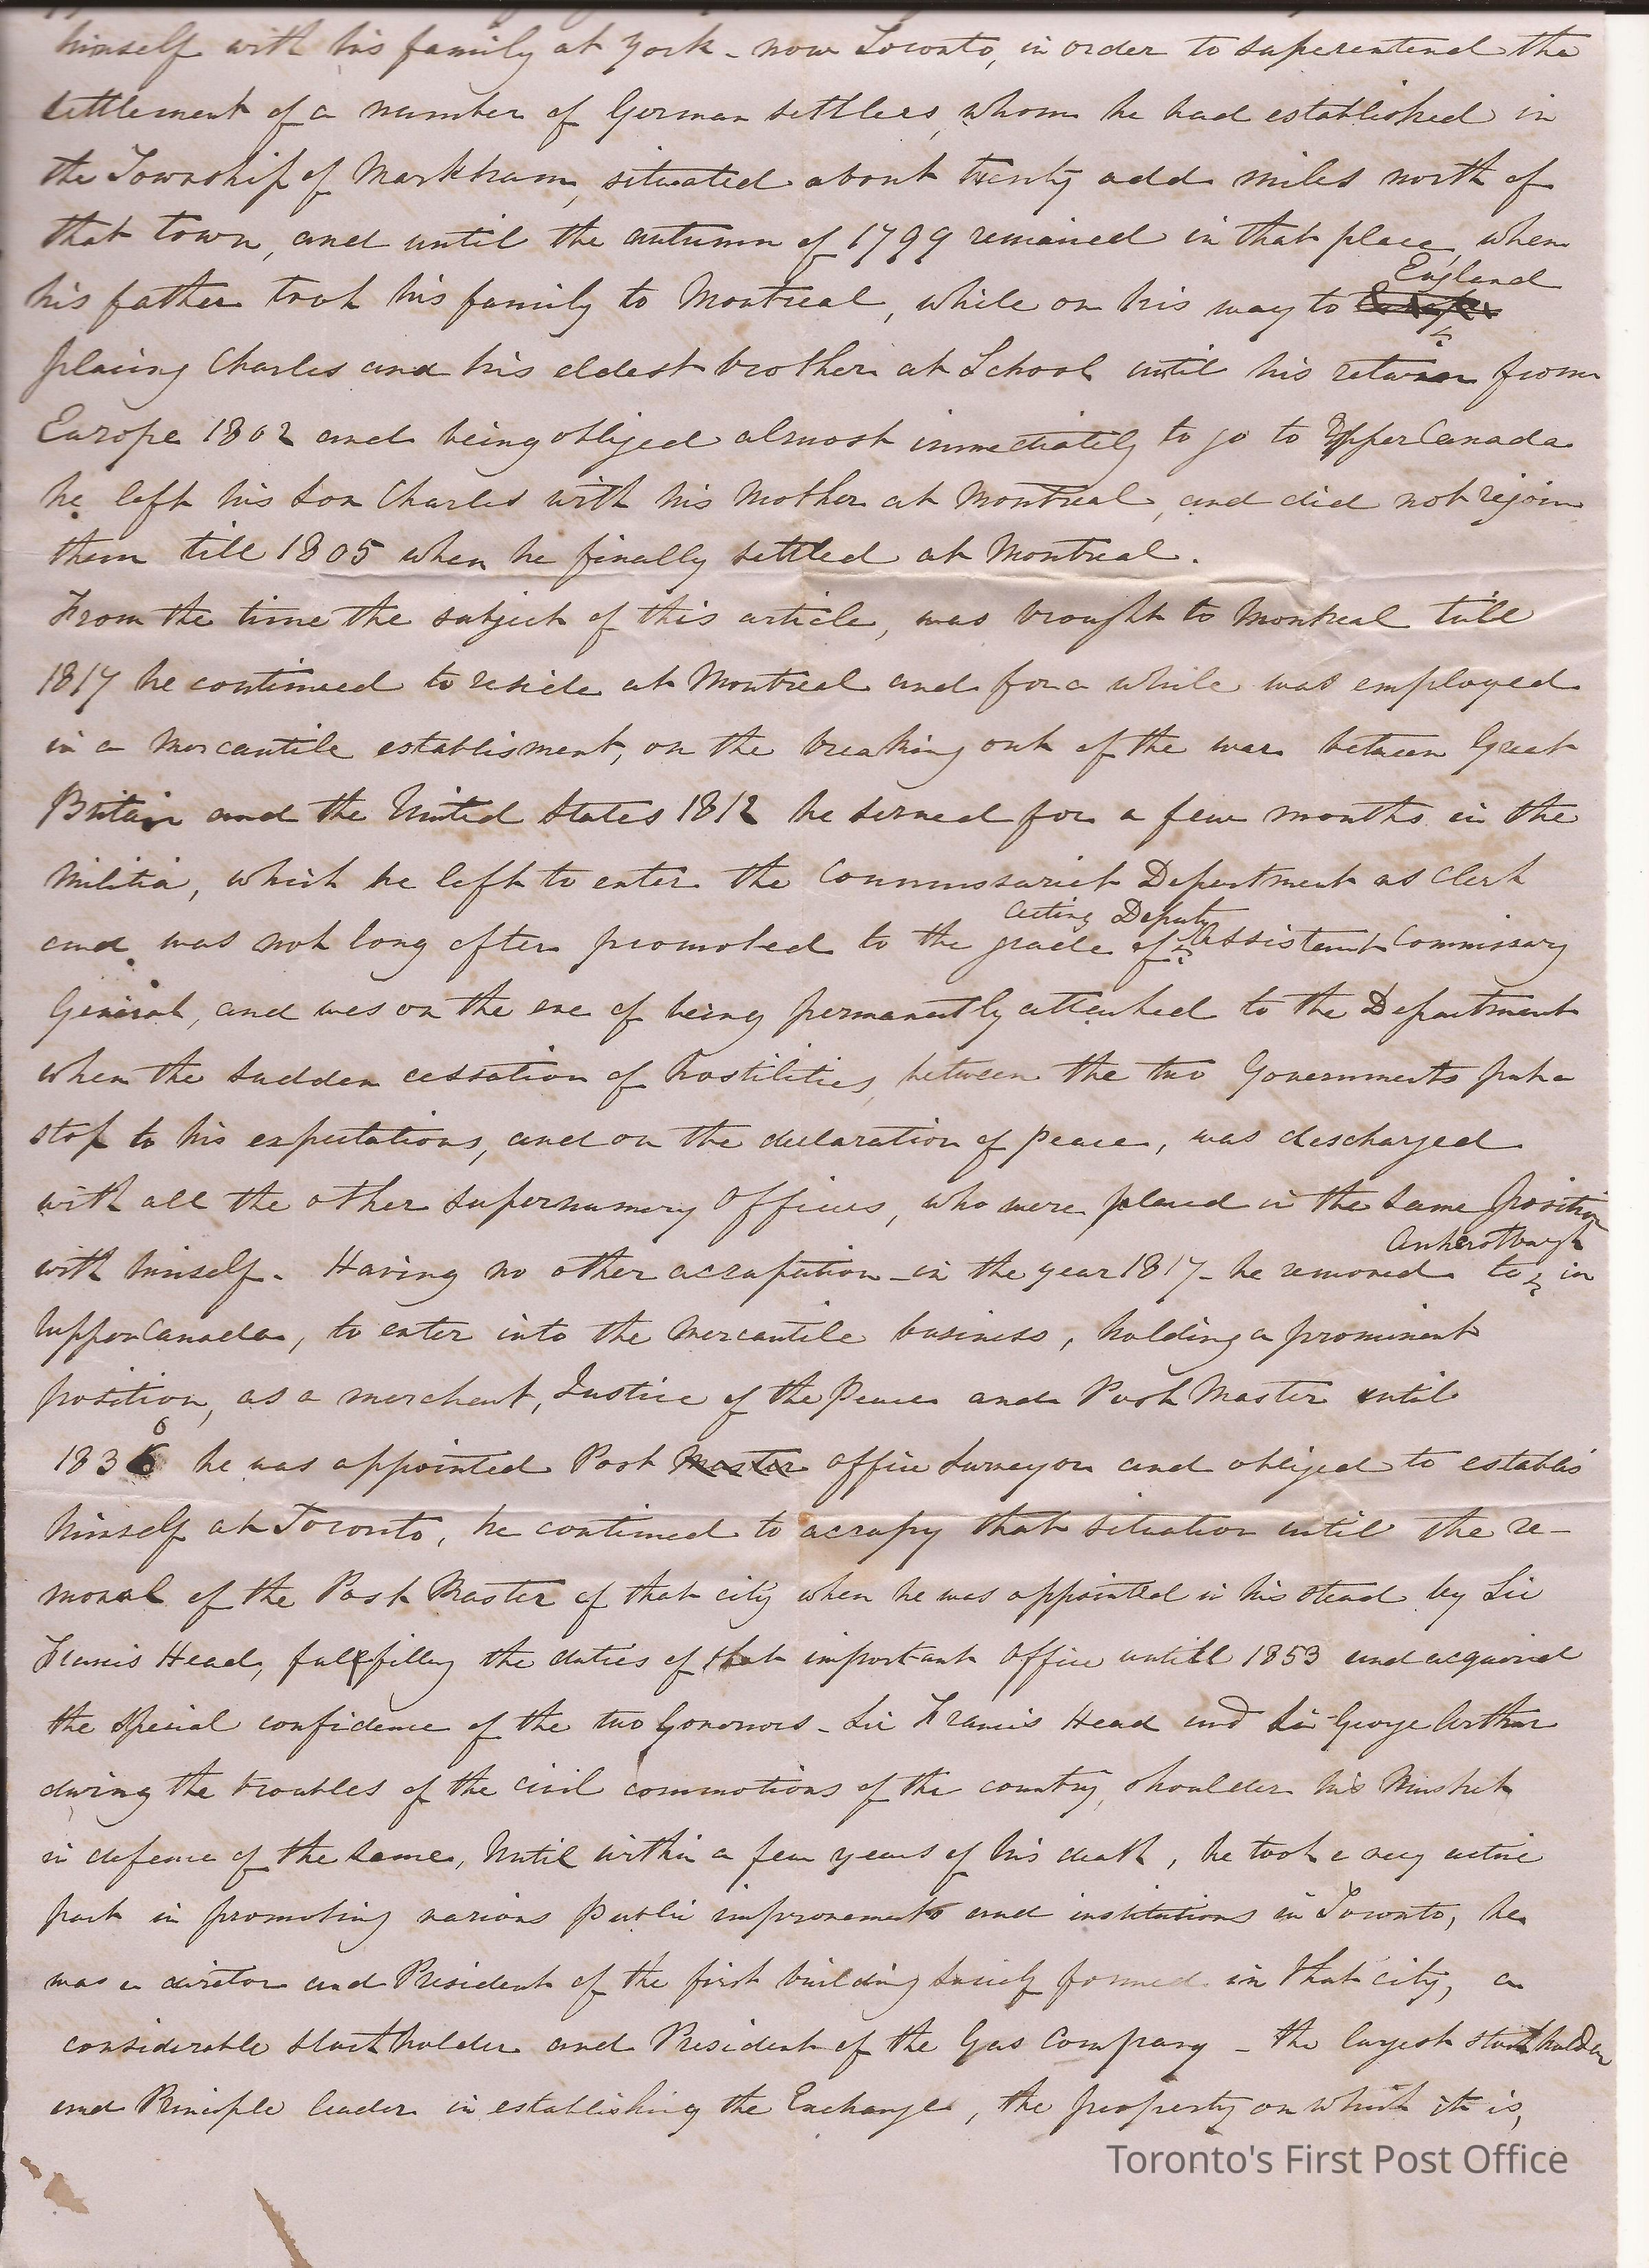 himself with his family at York - now Toronto, in order to superentend the
settlement of a number of German settlers, whom he had established in
the Township of Markham, situated about twenty add miles north of
that town, and until the autumn of 1799 remained in that place, when
England
his father took his family to Montreal, while on his way to
placing Charles and his eldest brother at School until his return from
Europe 1802 and being obliged almost immediatily to go to Upper Canada
he left his son Charles with his Mother at Montreal, and did not rejoin
them till 1805 when he finally settled at Montreal.
From the time the subject of this article, was brought to Montreal till
1817 he continued to reside at Montreal and for a while was employed
in a Mercantile establisment, on the breaking out of the war between Great
Britain and the United States 1812 he served for a few months in the
Militia, which he left to enter the Commissariet Department as Clerk
acting Deputy
and was not long after promoted to the grade of Assistant Commissary
General, and was on the eve of being permanently attached to the Department
when the sudden cessation of hostilities, between the two Governments put a
stop to his expectations, and on the declaration of peace, was descharged
with all the other supernumery Officers, who were placed in the same position
Amherstburgh
with himself - Having no other accupation - in the year 1817 - he removed to in
Upper Canada, to enter into the Mercantile business, holding a prominent
position, as a merchant, Justice of the Peace and Post Master until
6
1836 he was appointed Post Master office Surveyor and obliged to establis
himself at Toronto, he continued to accupy that situation until the re-
moval of the Post Master of that city when he was appointed in his stead by Sir
Francis Head, fullfilling the duties of that important Office untill 1853 and acquired
the special confidence of the two Governors - Sir Francis Head and Sir George Arthur
during the troubles of the civil commotions of the country, shoulder his Musket
in defence of the same, Until within a few years of his death, he took a very active
part in promoting various public improvements and institutions in Toronto, he
was a diretor and President of the first building Society formed in that city, a
considerable stockholder and President of the Gas Company - the largest stockholder
and Principle leader in establishing the Exchange, the property on which it is,
Toronto's First Post Office